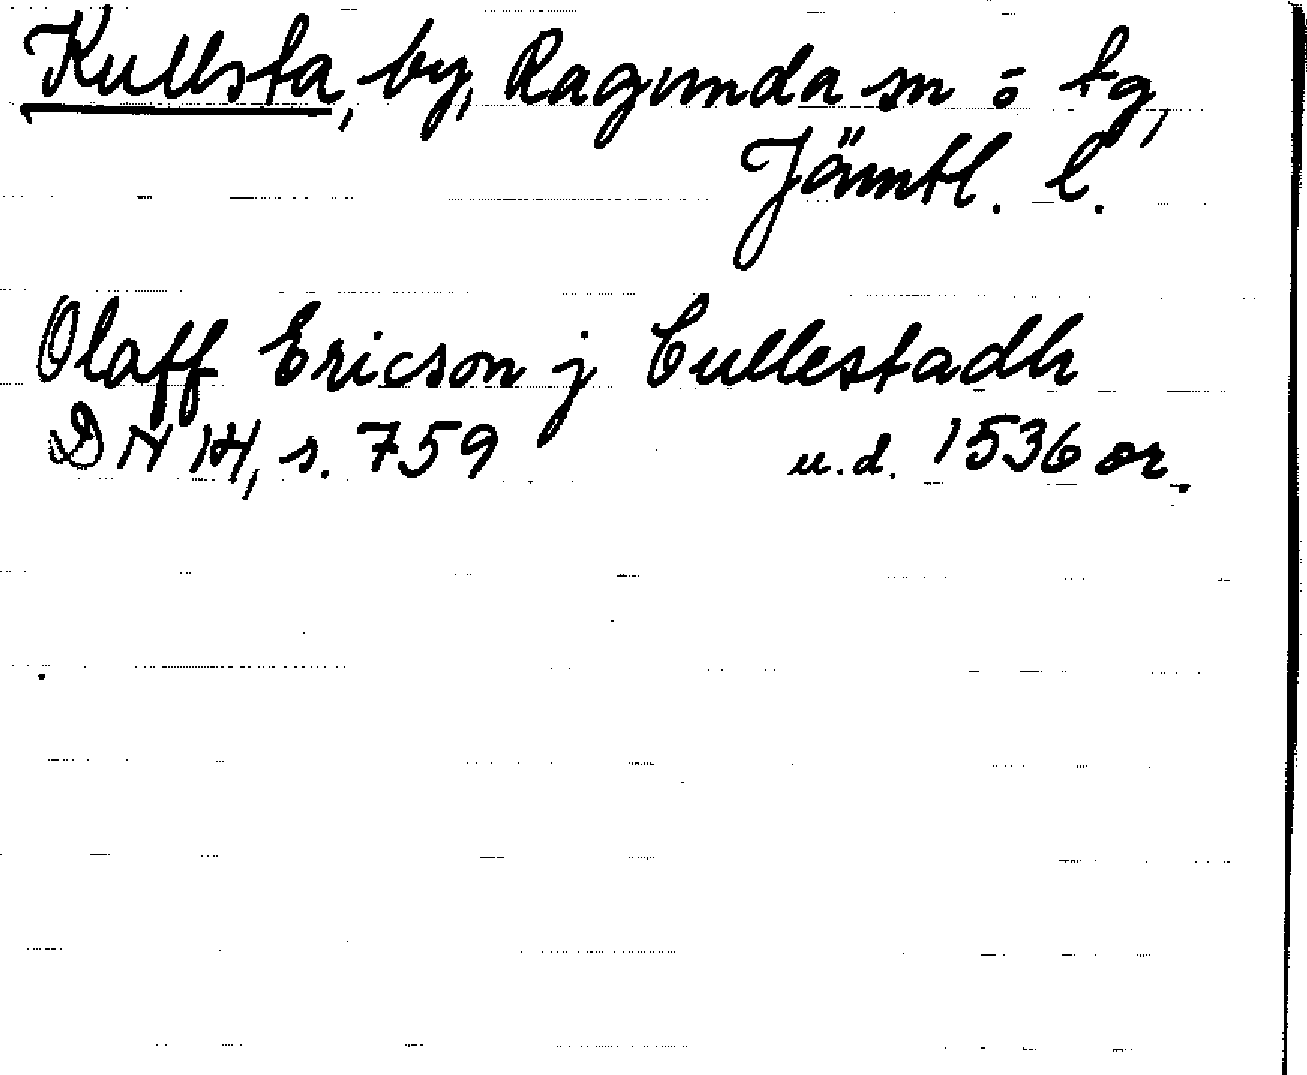 Kullsta, by, Ragunda sn o tg,
Jämtl. l.
Olaff Ericson j Cullestadh
DN 14, s. 759 u.d. 1536 or.